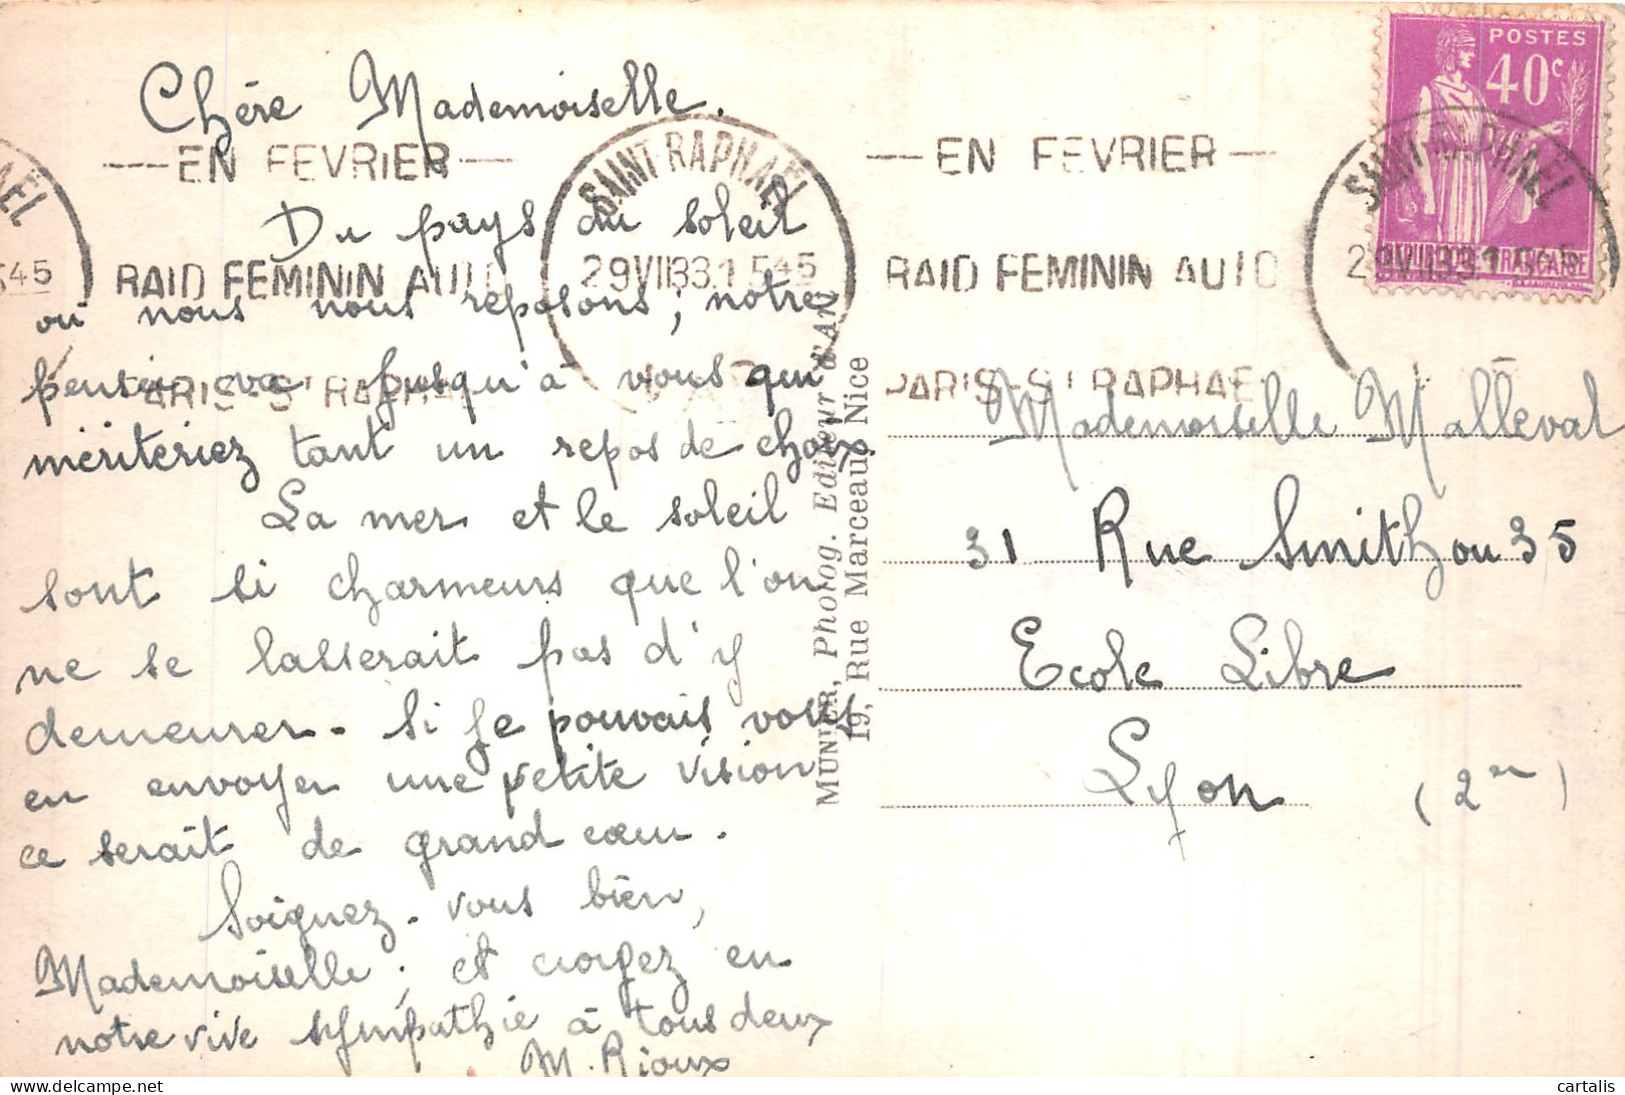 Chère Mademoiselle.
Du pays du soleil
où nous nous reposons, notre
pensée va jusqu'à vous qui
mériteriez tant un repos de choix.
La mer et le soleil
sont si charmeurs que l'on
ne se lasserait pas d'y
demeurer. Si je pouvais vous
en envoyer une petite vision
ce serait de grand cœur.
Soignez-vous bien,
Mademoiselle, et croyez en
notre vive sympathie à tous deux
M. Rioux
EN FEVRIER
RAID FEMININ AUTO
PARIS-ST RAPHAEL
SAINT RAPHAËL
29 VII 33 1545
EN FEVRIER
RAID FEMININ AUTO
PARIS-ST RAPHAE
SAINT-RAPHAEL
POSTES
40c
REPUBLIQUE FRANCAISE
MUNIER, Photog. Editeur d'Art
19, Rue Marceau, Nice
Mademoiselle Malleval
31 Rue Smith ou 35
Ecole Libre
Lyon (2er)
cartalis